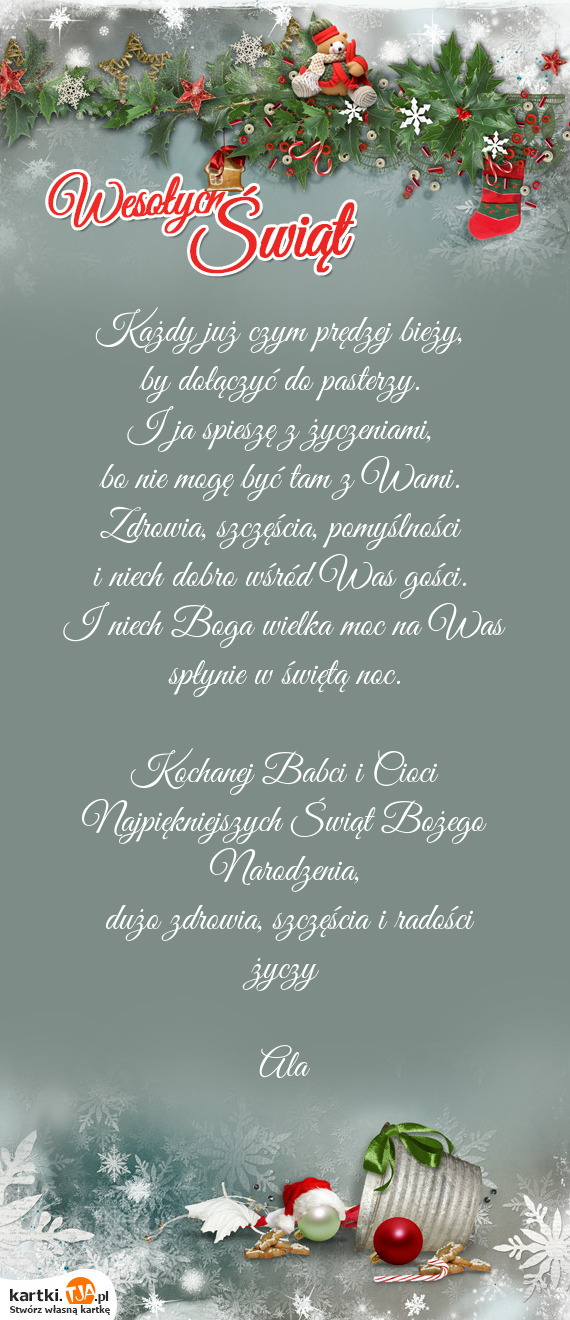 Wesołych
Świąt
Każdy już czym prędzej bieży,
by dołączyć do pasterzy.
I ja spieszę z życzeniami,
bo nie mogę być tam z Wami.
Zdrowia, szczęścia, pomyślności
i niech dobro wśród Was gości.
I niech Boga wielka moc na Was
spłynie w świętą noc.
Kochanej Babci i Cioci
Najpiękniejszych Świąt Bożego
Narodzenia,
dużo zdrowia, szczęścia i radości
życzy
Ala
kartki.TJA.pl
Stwórz własną kartkę